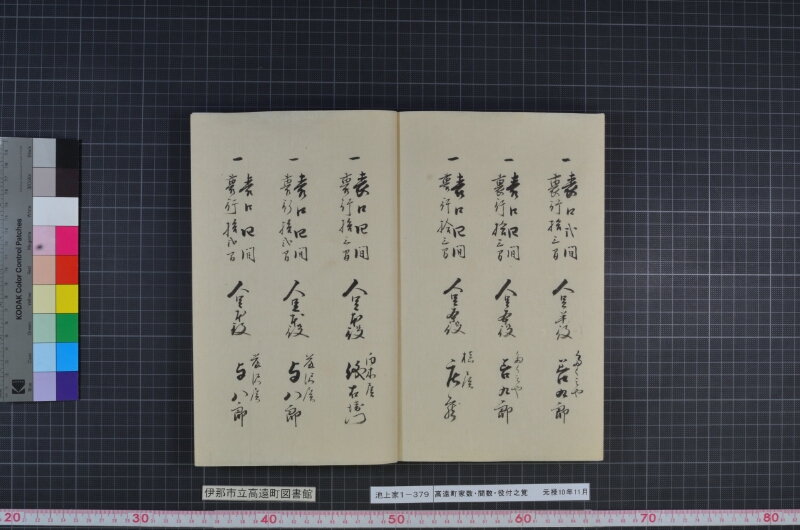 一 表口弐間
裏行拾三間
人足半役
吾九郎
一 表口四間
裏行拾三間
人足壱役
吾九郎
一 表口四間
裏行拾三間
人足壱役
桔屋
一 表口四間
裏行拾三間
人足壱役
白木屋
一 表口四間
裏行拾弐間
人足壱役
藤沢屋
与八郎
一 表口四間
裏行拾弐間
人足壱役
藤沢屋
与八郎
伊那市立高遠町図書館
池上家1-379 高遠町家数・間数・役付之覚 元禄10年11月
KODAK Color Control Patches
20 30 40 50 60 70 80